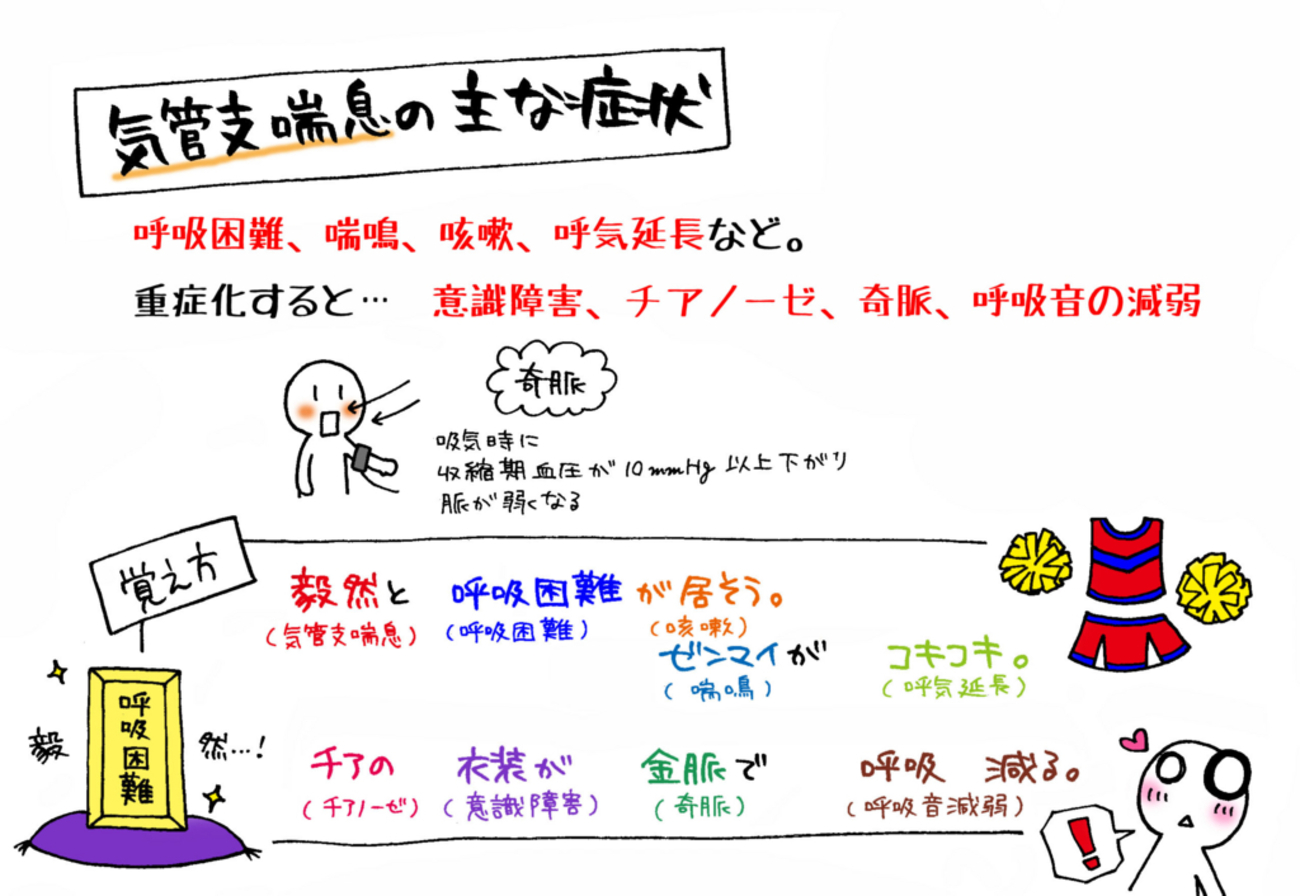 気管支喘息の主な症状
呼吸困難、喘鳴、咳嗽、呼気延長など。
重症化すると… 意識障害、チアノーゼ、奇脈、呼吸音の減弱
奇脈
吸気時に
収縮期血圧が10mmHg以上下がり
脈が弱くなる
覚え方
毅然と 呼吸困難が居そう。
(気管支喘息) (呼吸困難) (咳嗽)
ゼンマイが コキコキ。
(喘鳴) (呼気延長)
毅 呼吸困難 然…!
チアの 衣装が 金脈で 呼吸 減る。
(チアノーゼ) (意識障害) (奇脈) (呼吸音減弱)
!